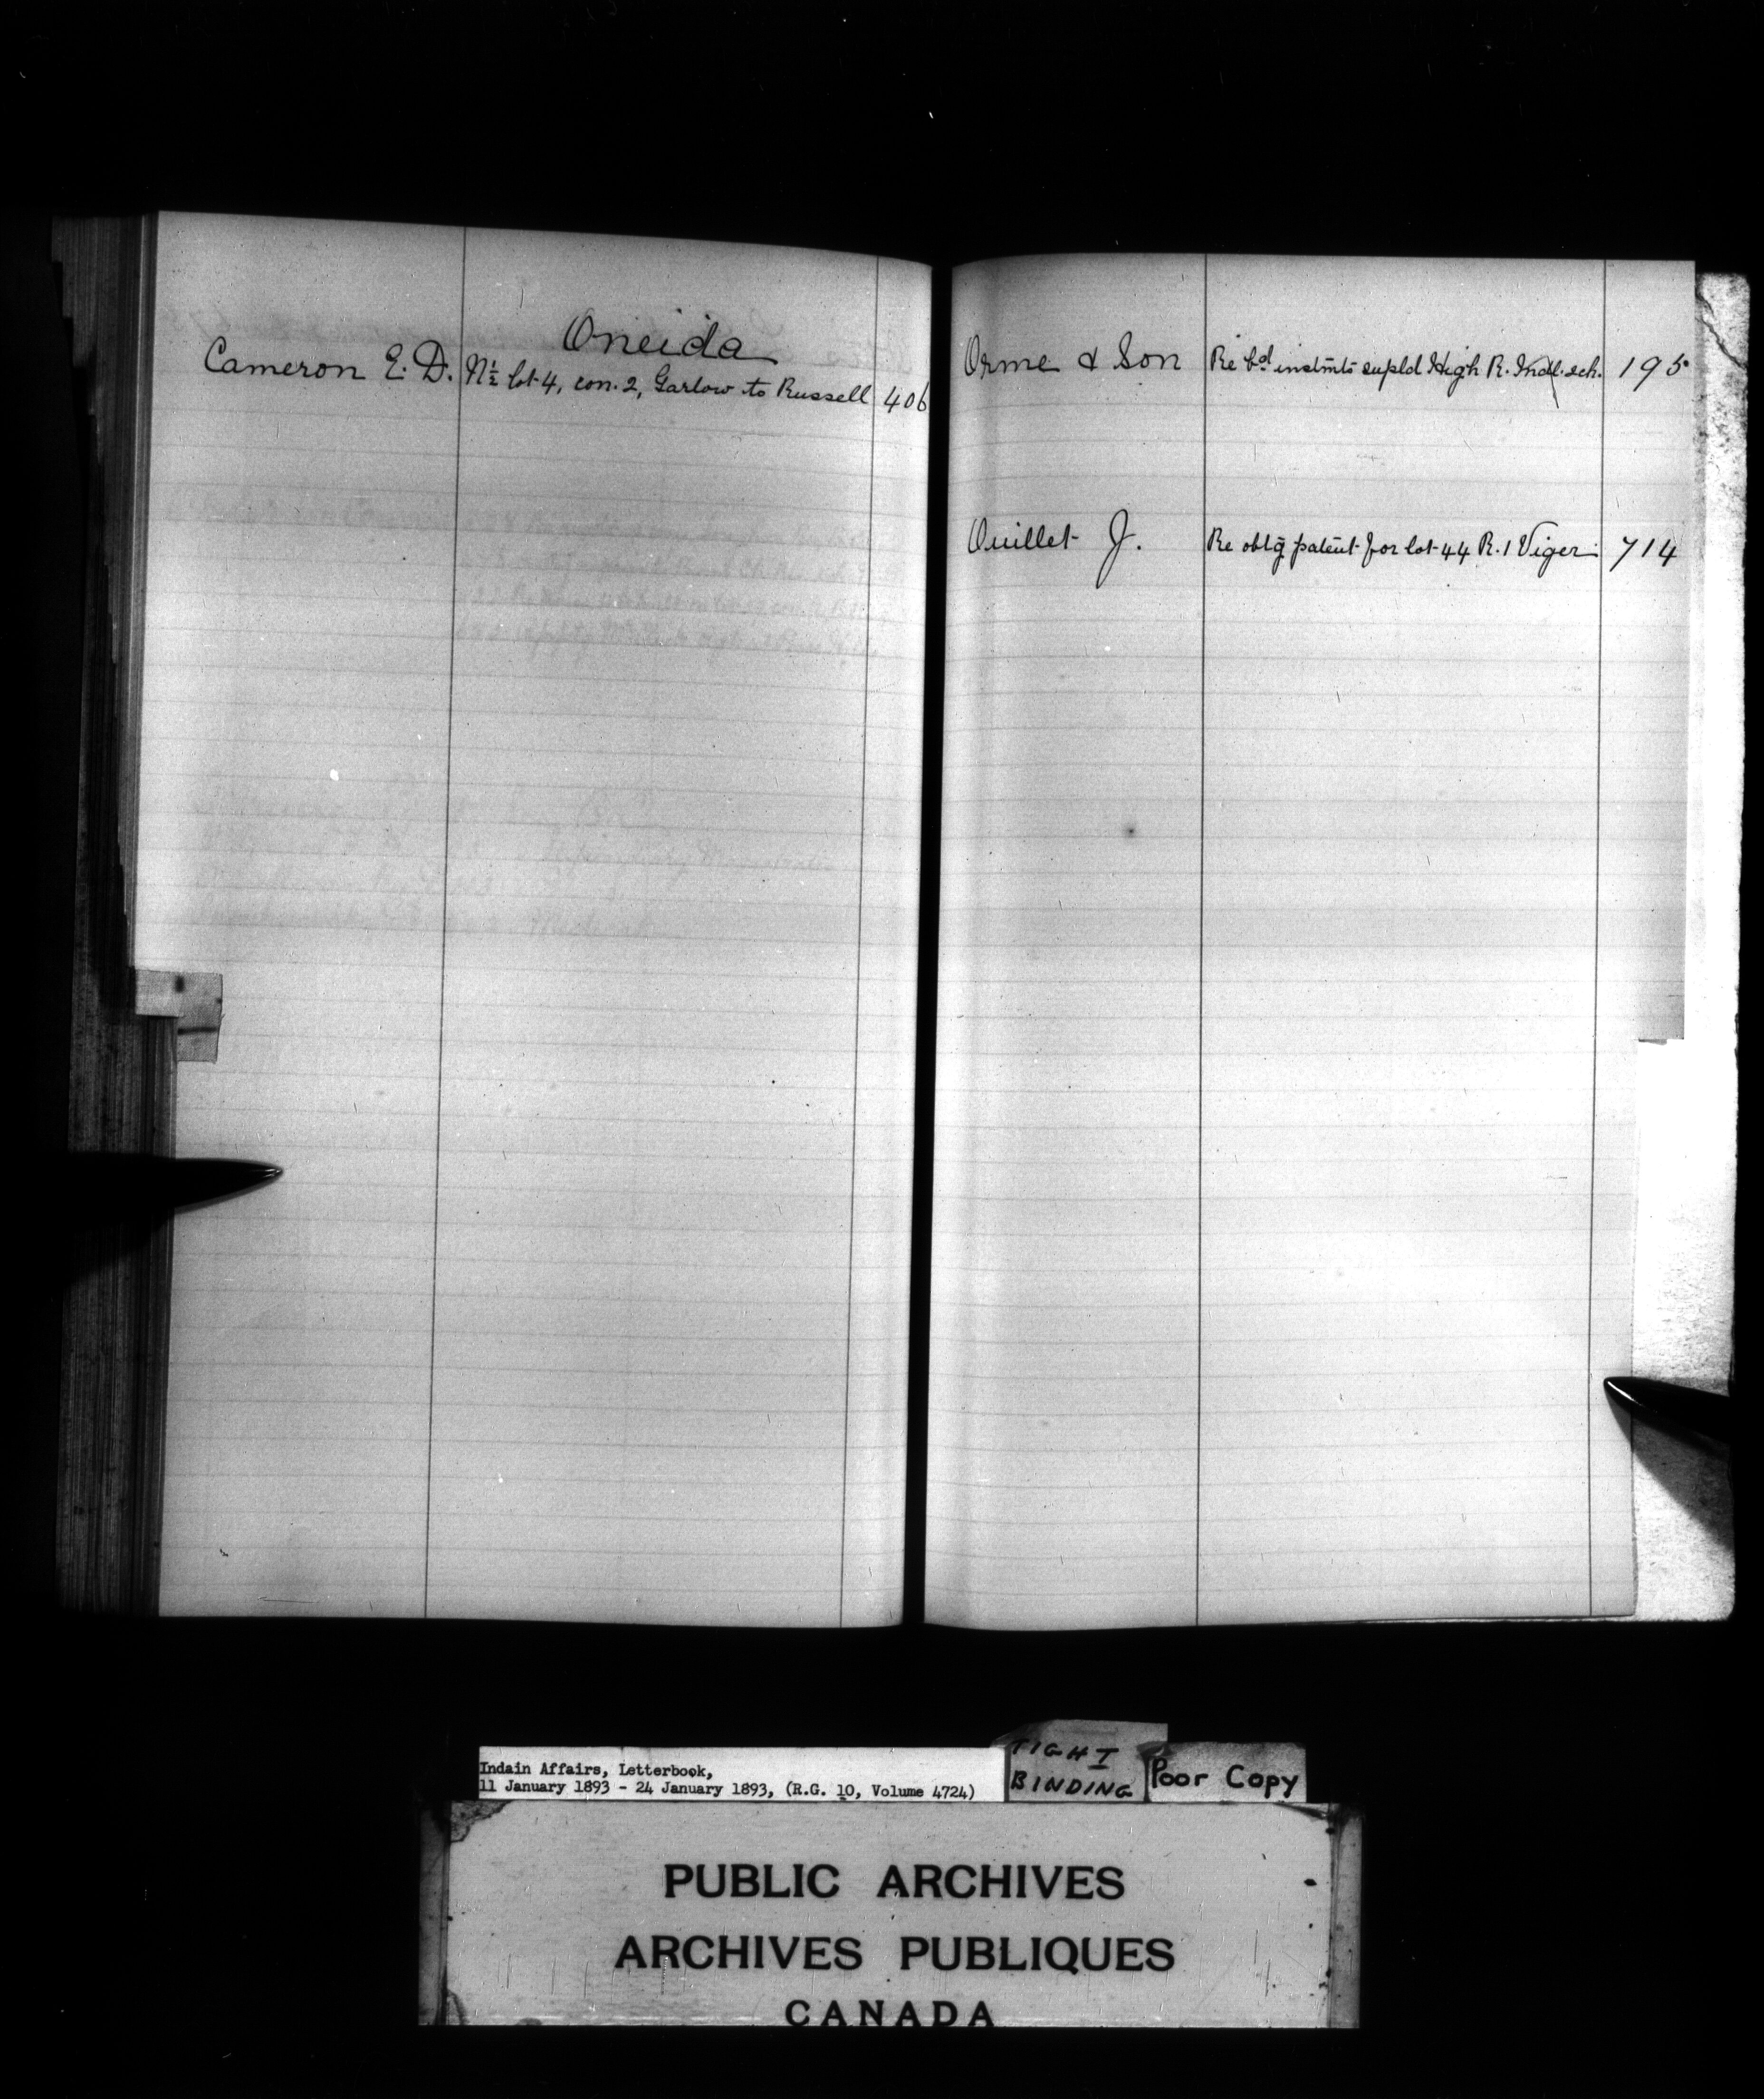 Oneida
Cameron E. D. N½ lot 4, con. 2, Garlow to Russell 406
Orme & Son Re bd instmts supld High R. Indl. sch. 195
Ouillet J. Re obtg patent for lot 44 R. 1 Viger 714
Indain Affairs, Letterbook,
11 January 1893 - 24 January 1893, (R.G. 10, Volume 4724)
TIGHT
BINDING
Poor Copy
PUBLIC ARCHIVES
ARCHIVES PUBLIQUES
CANADA